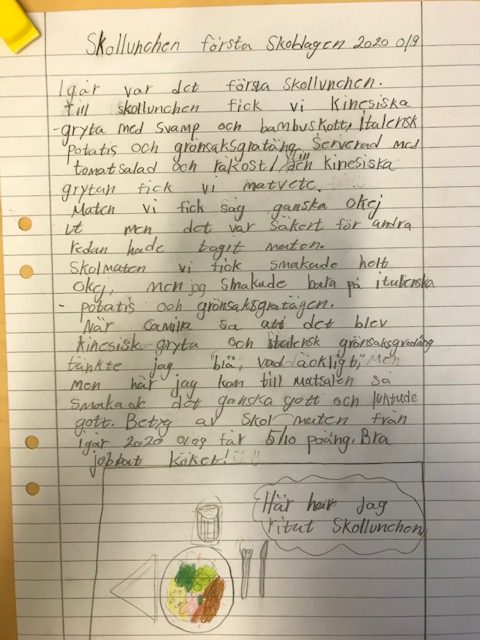 Skollunchen första Skoldagen 2020 0/9
Igår var det första Skollunchen.
Till skollunchen fick vi Kinesiska
-gryta med svamp och bambuskott, Italensk
potatis och grönsaksgratäng. Serverad med
tomatsalad och råkost/ till kinesiska
grytan fick vi matvete.
Maten vi fick såg ganska okej
ut men det var säkert för andra
redan hade tagit maten.
Skolmaten vi fick smakade helt
Okej, men jag smakade bara på italienska
- potatis och grönsaksgratägen.
När Camira sa att det blev
kinesisk gryta och italensk grönsaksgratäng
tänkte jag "blä, vad äckligt",
men när jag kom till matsalen så
smakade det ganska gott och luktude
gott. Betyg av Skol maten från
igår 2020 01.09 får 5/10 poäng. Bra
jobbat köket!
Här har Jag
ritut Skollunchen